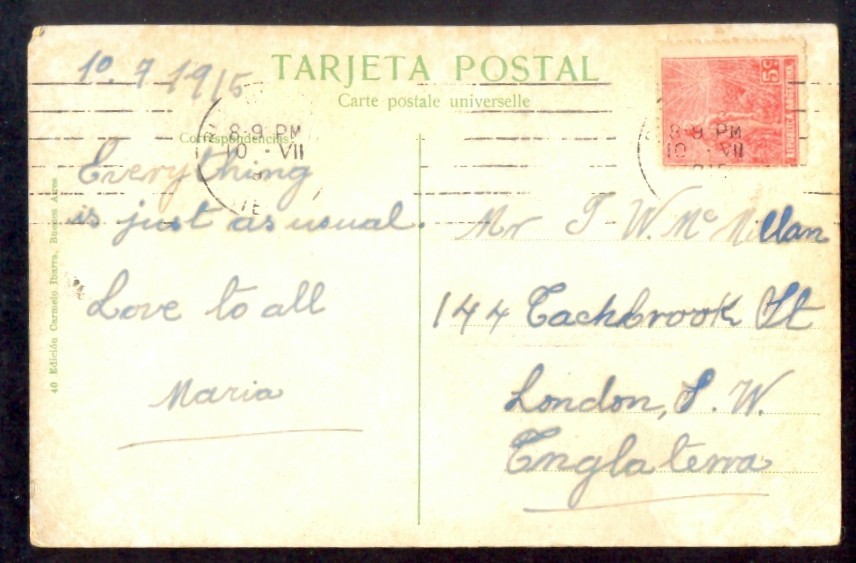 10. 7 1915
TARJETA POSTAL
Carte postale universelle
5c
Correspondencias
8-9 PM
10 - VII
8-9 PM
10 - VII
Everything
is just as usual.
Love to all
Maria
Mr T W. Mc Millan
144 Tachbrook St
London, S. W.
Englaterra
40 Edición Carmelo Ibarra, Buenos Aires